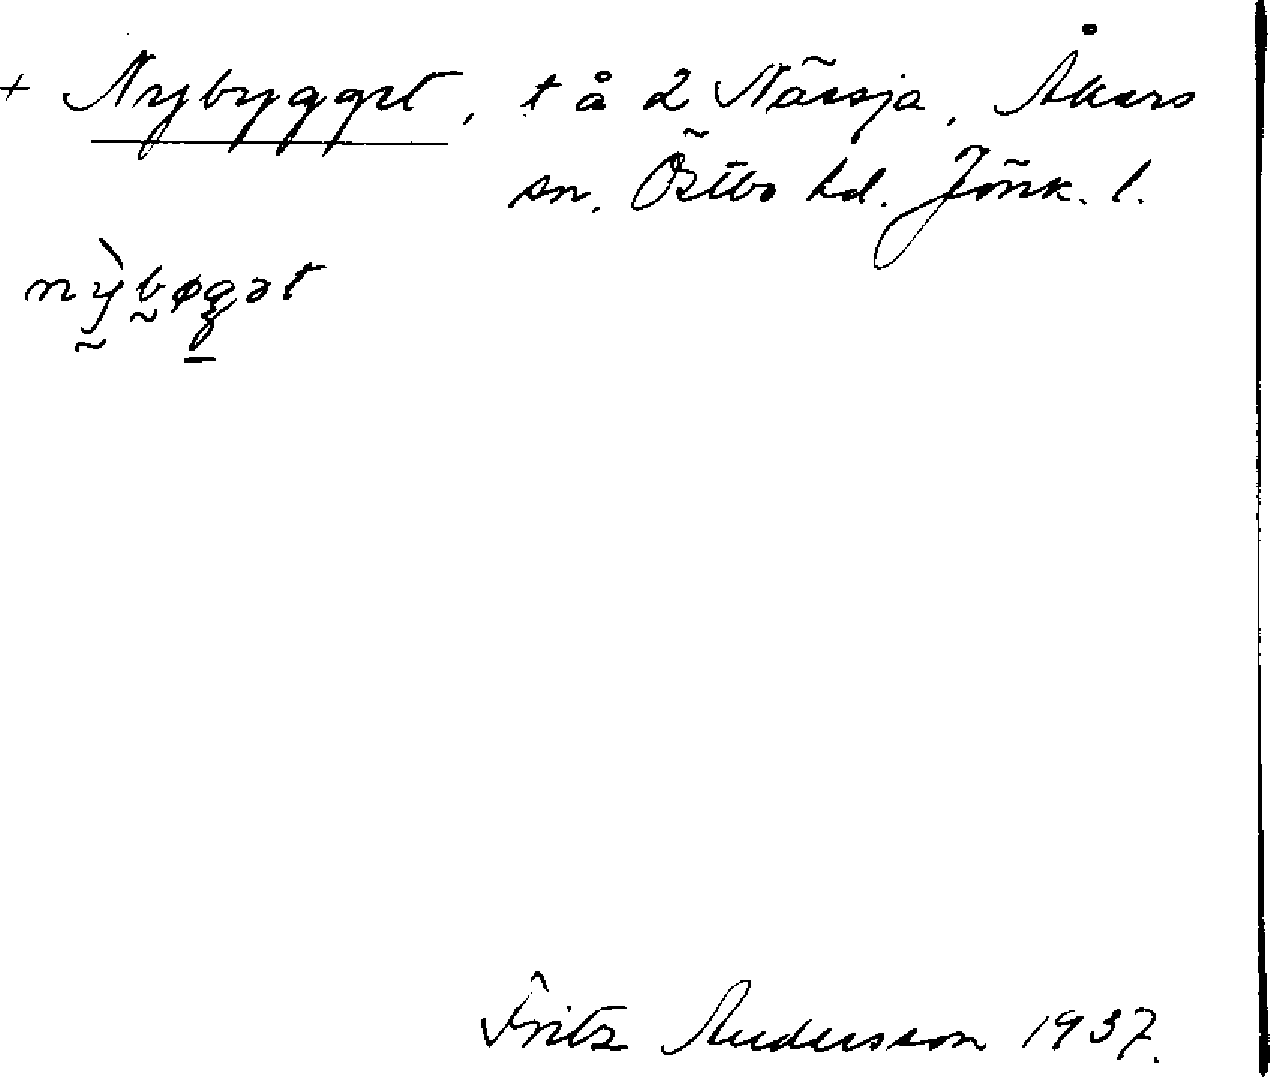 + Nybygget, t å 2 Nässja, Åkers
sn. Östbo hd. Jönk. l.
nỳbøgət
Fritz Andersson 1937.